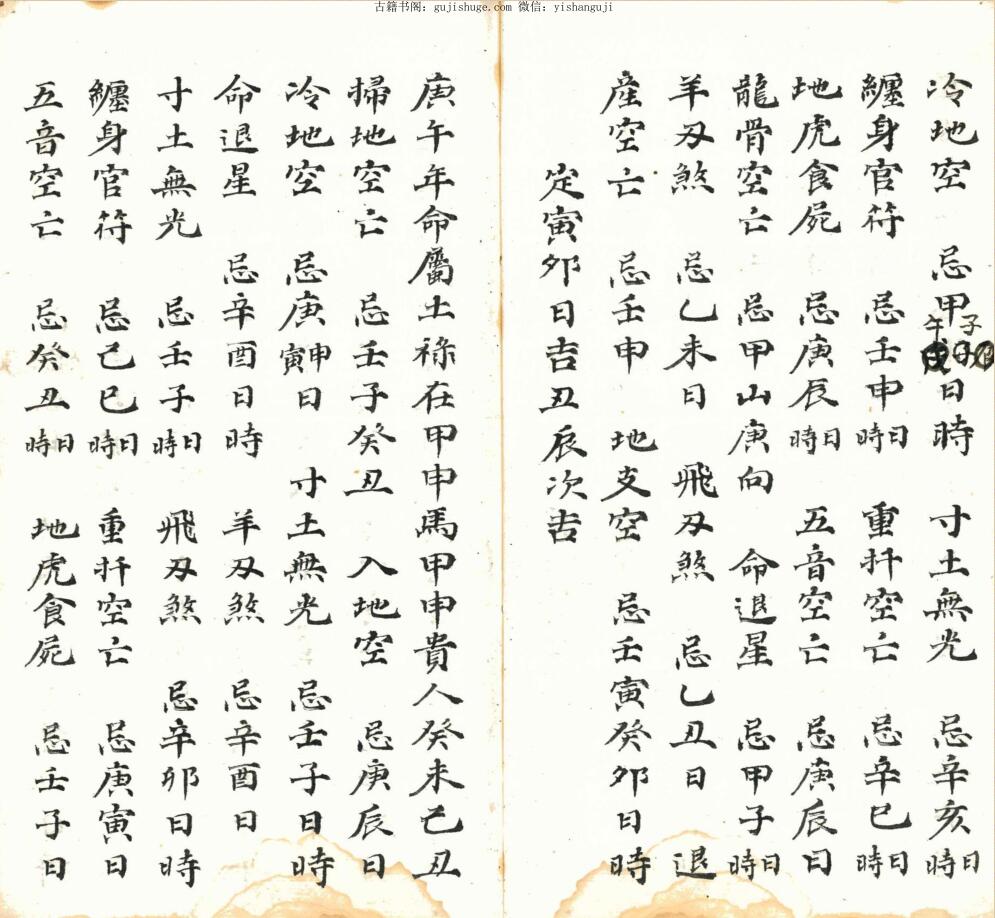 古籍书阁：gujishuge.com 微信：yishanguji
冷地空 忌甲子午日時 寸土無光 忌辛亥日時
纏身官符 忌壬申日時 重扦空亡 忌辛巳日時
地虎食屍 忌庚辰日時 五音空亡 忌庚辰日
龍骨空亡 忌甲山庚向 命退星 忌甲子日時
羊刃煞 忌乙未日 飛刃煞 忌乙丑日 退
産空亡 忌壬申 地支空 忌壬寅癸卯日時
定寅卯日吉丑辰次吉
庚午年命屬土祿在甲申馬甲申貴人癸未己丑
掃地空亡 忌壬子癸丑 入地空 忌庚辰日
冷地空 忌庚申寅日 寸土無光 忌壬子日時
命退星 忌辛酉日時 羊刃煞 忌辛酉日
寸土無光 忌壬子日時 飛刃煞 忌辛卯日時
纏身官符 忌己巳日時 重扦空亡 忌庚寅日
五音空亡 忌癸丑日時 地虎食屍 忌壬子日